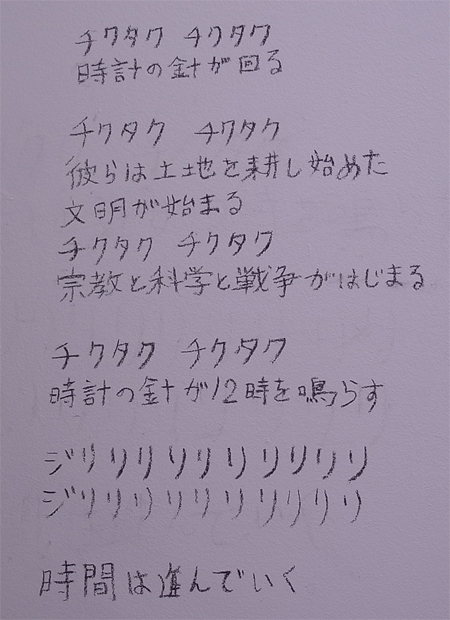 チクタク チクタク
時計の針が回る
チクタク チクタク
彼らは土地を耕し始めた
文明が始まる
チクタク チクタク
宗教と科学と戦争がはじまる
チクタク チクタク
時計の針が12時を鳴らす
ジリリリリリリリリリリ
ジリリリリリリリリリリリ
時間は進んでいく